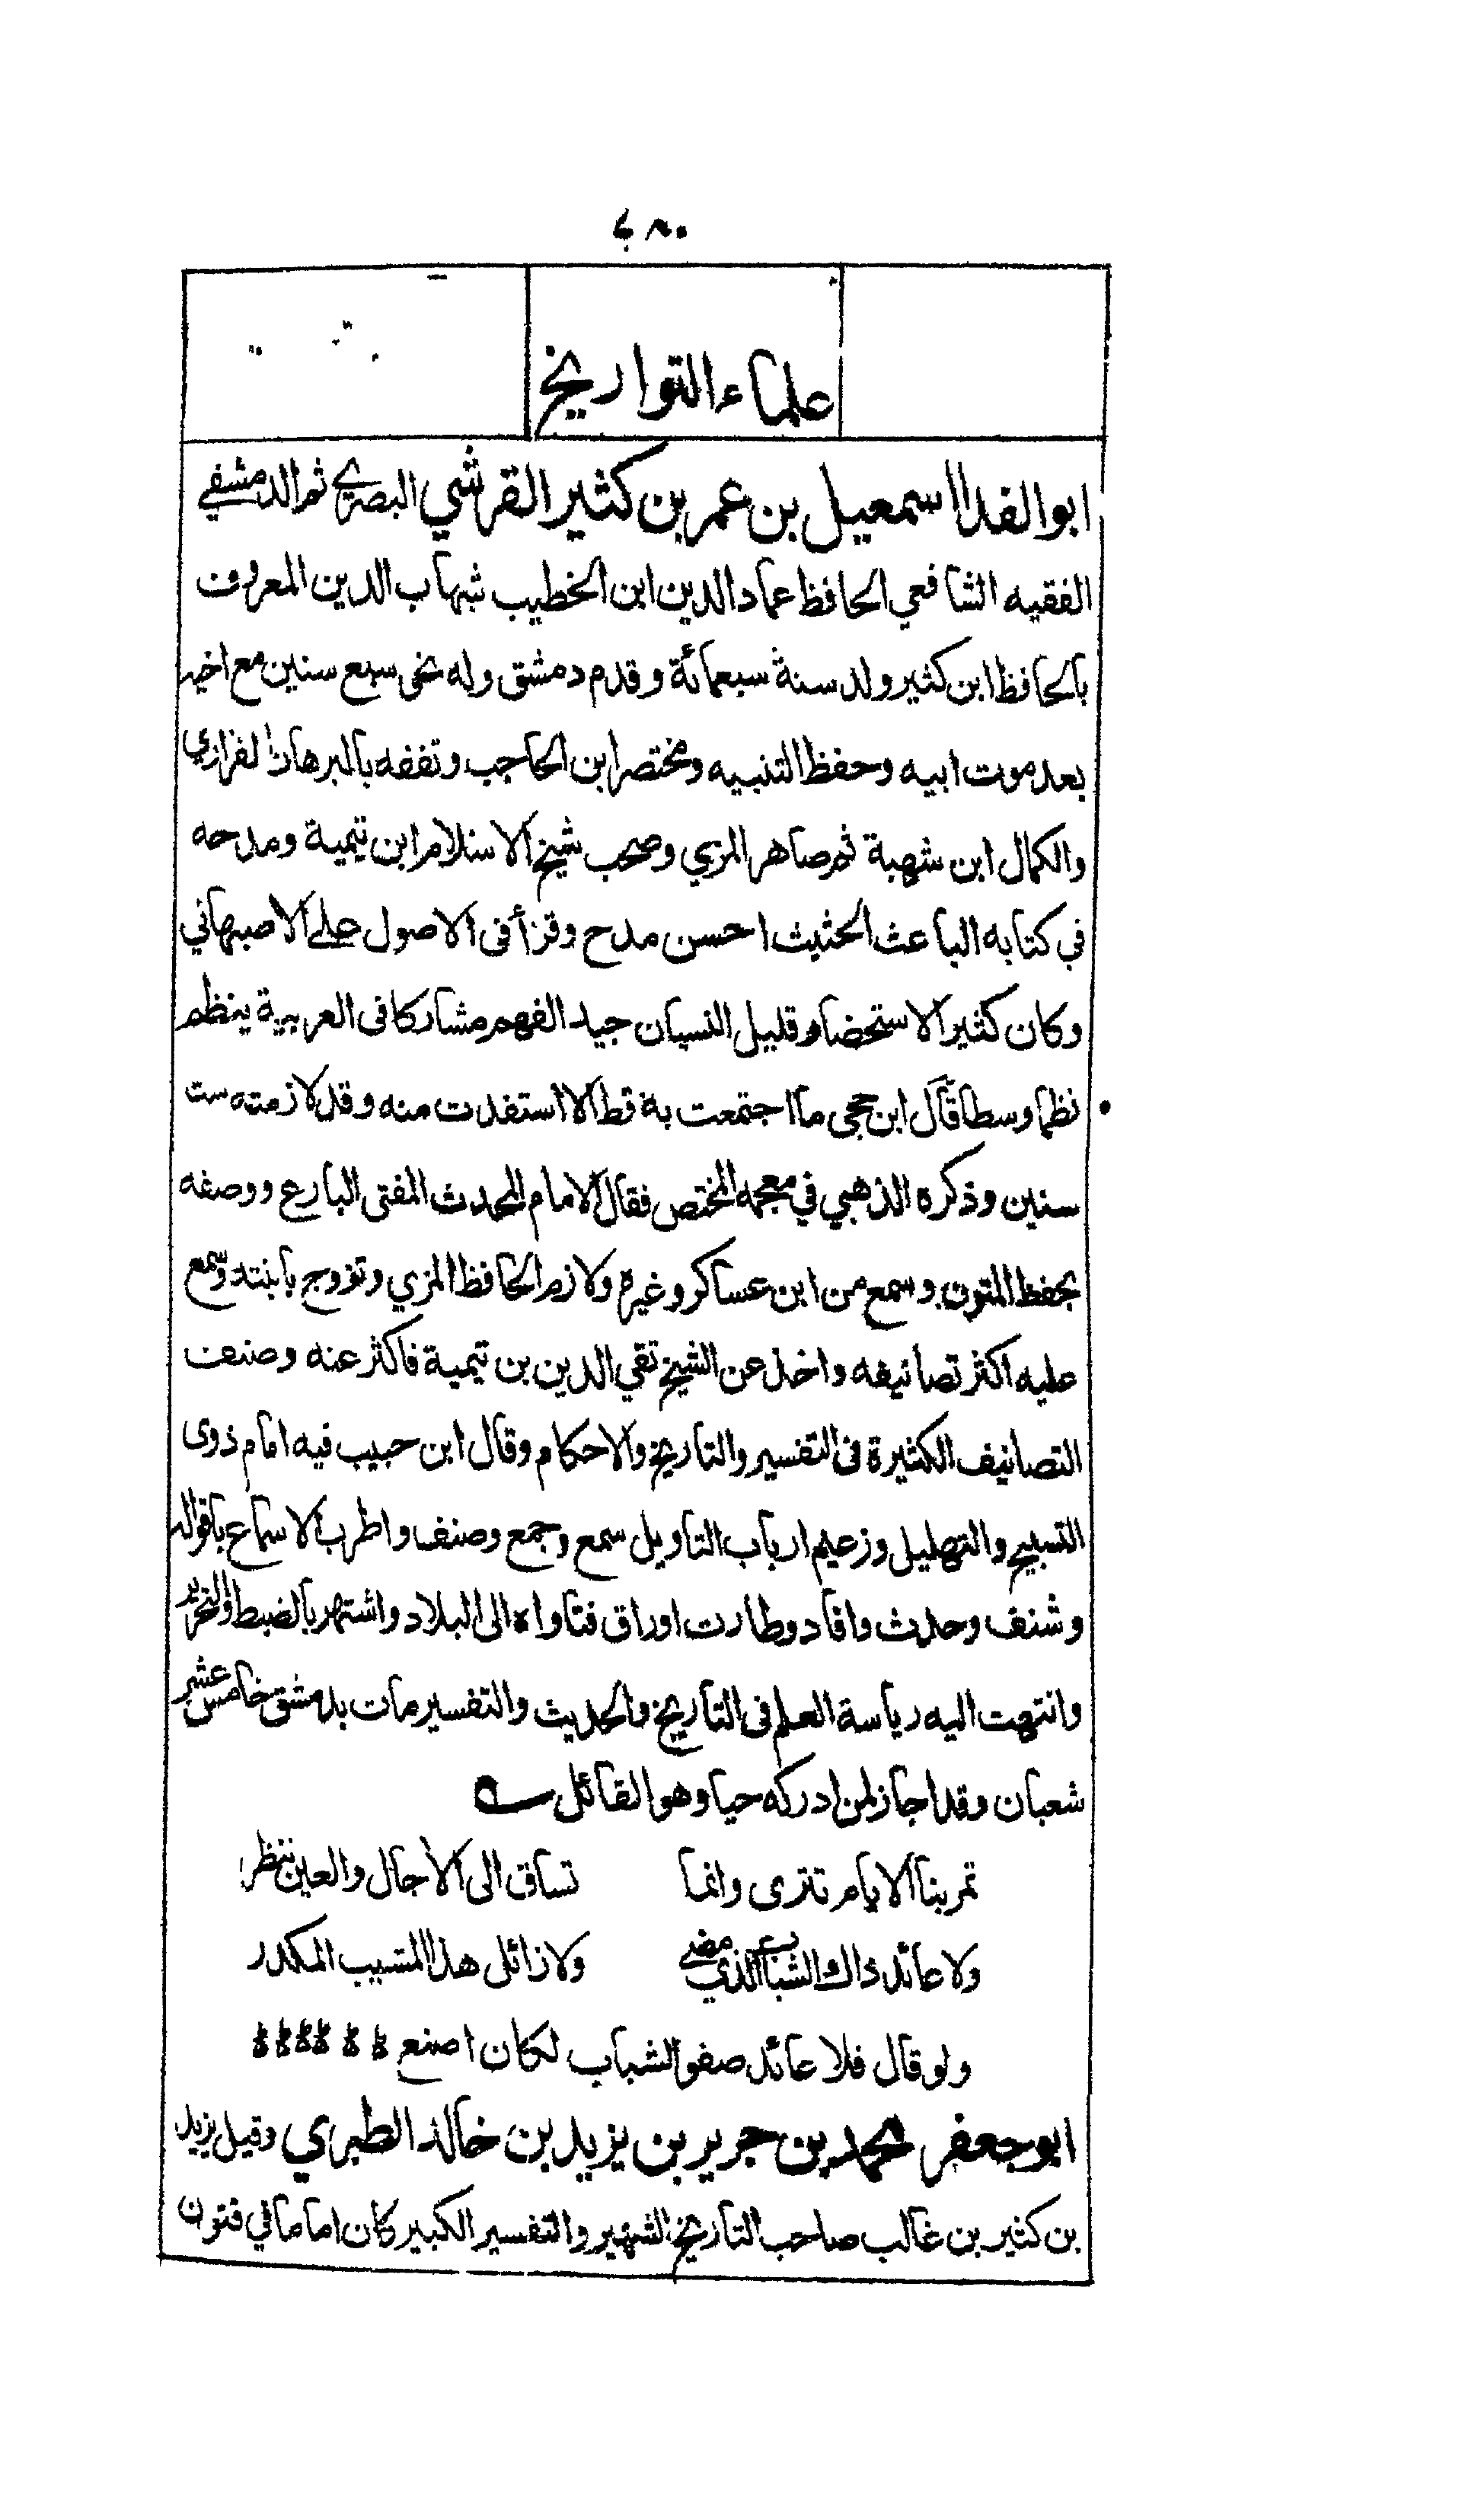 ٧٨٠
علماء التواريخ
ابو الفدا اسمعيل بن عمر بن كثير القرشي البصري ثم الدمشقي
الفقيه الشافعي الحافظ عماد الدين ابن الخطيب شهاب الدين المعروف
بالحافظ ابن كثير ولد سنة سبعمائة وقدم دمشق وله نحى سبع سنين مع اخيه
بعد موت ابيه وحفظ التنبيه ومختصر ابن الحاجب وتفقه بالبرهان الفزازي
والكمال ابن شهبة ثم صاهر المزي وصحب شيخ الاسلام ابن تيمية ومدحه
في كتابه الباعث الحثيث احسن مدح وقرأ فى الاصول على الاصبهاني
وكان كثير الاستحضار قليل النسيان جيد الفهم مشاركا فى العربية ينظم
نظما وسطا قال ابن حجى ما اجتمعت به قط الا استفدت منه وقد لازمته ست
سنين وذكره الذهبي في معجمه المختص فقال الامام المحدث المفتى البارع ووصفه
بحفظ المتون وسمع من ابن عساكر وغيره ولازم الحافظ المزي وتزوج بابنته وسمع
عليه اكثر تصانيفه واخذ عن الشيخ تقي الدين بن تيمية فاكثر عنه وصنف
التصانيف الكثيرة فى التفسير والتاريخ والاحكام وقال ابن حبيب فيه امام ذوى
التسبيح والتهليل وزعيم ارباب التاويل سمع وجمع وصنف واطرب الاسماع باقواله
وشنف وحدث وافاد وطارت اوراق فتاواه الى البلاد واشتهر بالضبط والتحرير
وانتهت اليه رياسة العلم فى التاريخ والحديث والتفسير مات بدمشق خامس عشر
شعبان وقد اجاز لمن ادركه حيا وهو القائل
تمر بنا الايام تترى وانما تساق الى الأجال والعين تنظر
ولا عائد ذاك الشباب الذي مضى ولا زائل هذا المشيب المكدر
ولو قال فلا عائد صفو الشباب لكان اصنع
ابو جعفر محمد بن جرير بن يزيد بن خالد الطبري وقيل يزيد
بن كثير بن غالب صاحب التاريخ الشهير والتفسير الكبير كان اماما في فنون